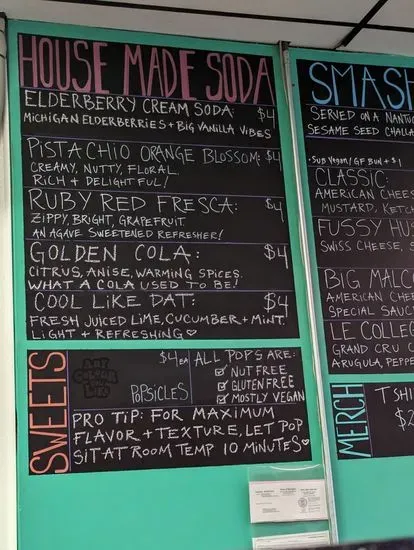 HOUSE MADE SODA
ELDERBERRY CREAM SODA: $4
MICHIGAN ELDERBERRIES + BIG VANILLA VIBES
PISTACHIO ORANGE BLOSSOM: $4
CREAMY, NUTTY, FLORAL.
RICH + DELIGHTFUL!
RUBY RED FRESCA: $4
ZIPPY, BRIGHT, GRAPEFRUIT.
AN AGAVE SWEETENED REFRESHER!
GOLDEN COLA: $4
CITRUS, ANISE, WARMING SPICES.
WHAT A COLA USED TO BE!
COOL LIKE DAT: $4
FRESH JUICED LIME, CUCUMBER + MINT.
LIGHT + REFRESHING ♡
SWEETS
$4 EA
POPSICLES
ALL POPS ARE:
☑ NUT FREE
☑ GLUTEN FREE
☑ MOSTLY VEGAN
PRO TIP: FOR MAXIMUM
FLAVOR + TEXTURE, LET POP
SIT AT ROOM TEMP 10 MINUTES ♡
SMASH
SERVED ON A
SESAME SEED CHALLA
- SUB VEGAN / GF BUN + $1
CLASSIC:
AMERICAN CHEES
MUSTARD, KETCH
FUSSY HU
SWISS CHEESE, S
BIG MALCO
AMERICAN CHE
SPECIAL SAUC
LE COLLE
GRAND CRU C
ARUGULA, PEPPE
MERCH
T SHI
$2